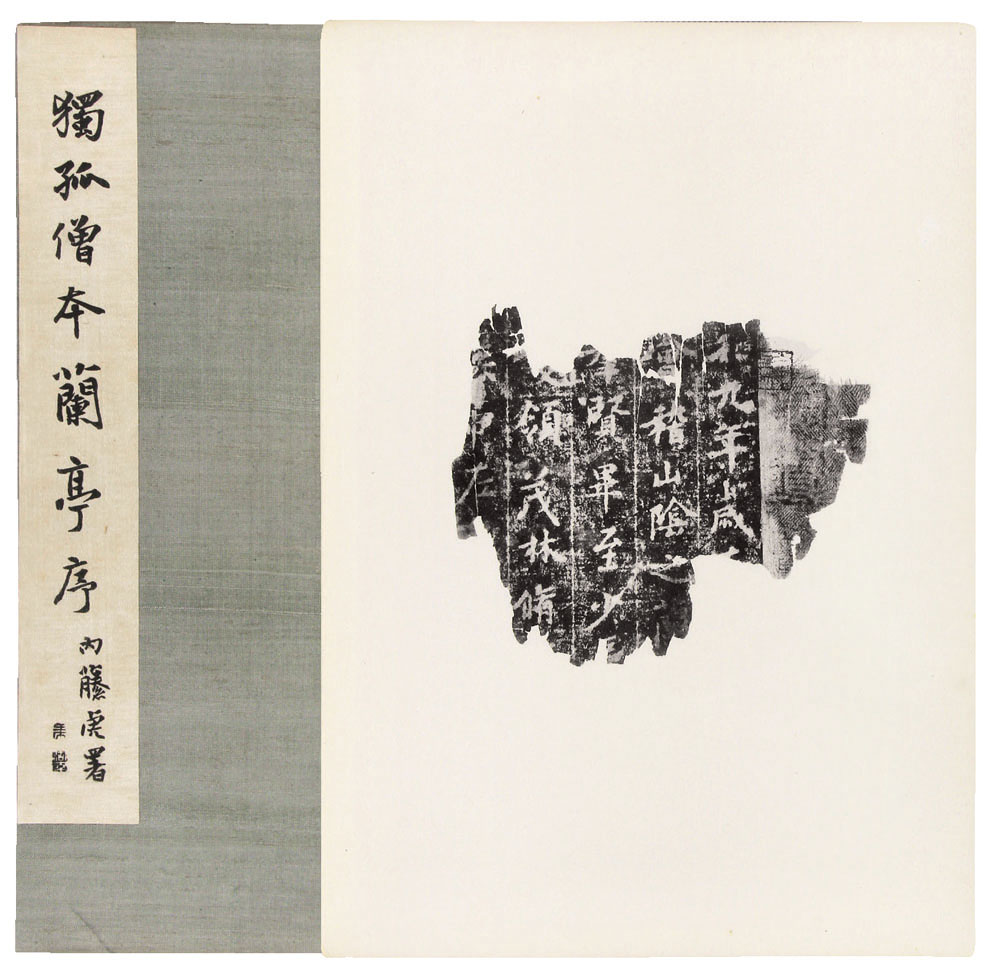 獨孤僧本蘭亭序
内藤虎署
九年歳
稽山陰之
賢畢至少
領茂林脩
帶左